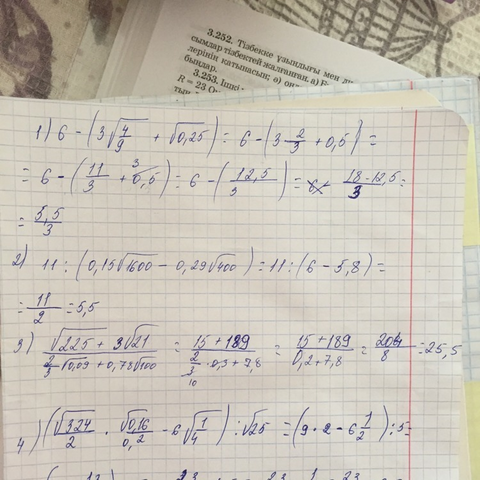 3.252. Тізбекке ұзындығы мен
сымдар тізбектей жалғанған. а)
лерінің қатынасын;
бындар.
3.253. Ішкі
R = 23 О
1) 6 - (3√4/9 + √0,25) = 6 - (3 2/3 + 0,5) =
= 6 - (11/3 + 0,5) = 6 - (12,5/3) = 18-12,5/3 =
= 5,5/3
2) 11 : (0,15√1600 - 0,29√400) = 11 : (6 - 5,8) =
= 11/2 = 5,5
3) √225 + 3√21 / 2/3 √0,09 + 0,78√100 = 15 + 189 / 2/3 · 0,3 + 7,8 = 15 + 189 / 0,2 + 7,8 = 204/8 = 25,5
4) (√324/2 · √0,16/0,2 - 6√1/4) : √25 = (9 · 2 - 6 1/2) : 5 =